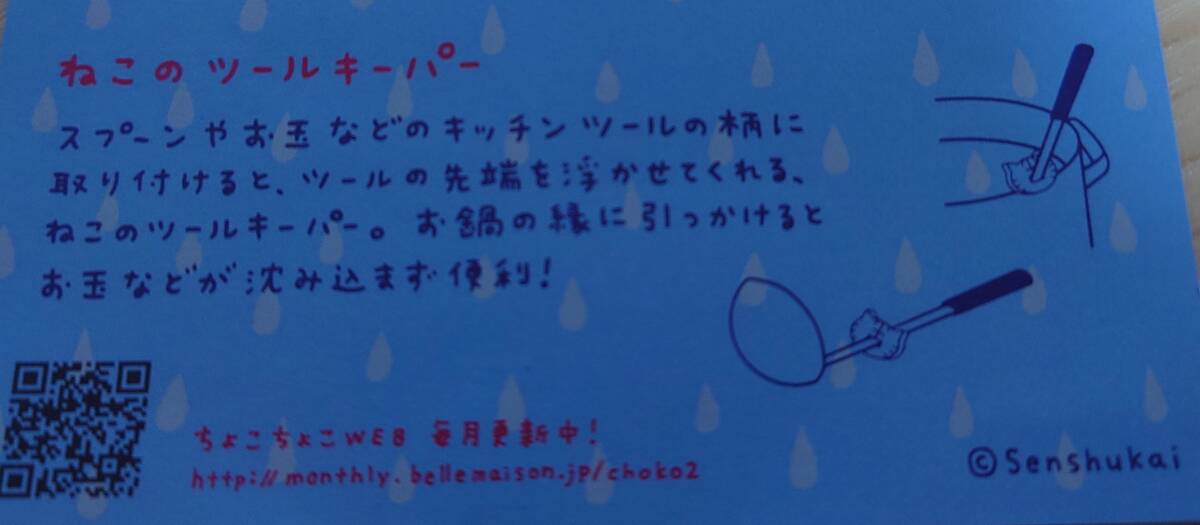 ねこのツールキーパー
スプーンやお玉などのキッチンツールの柄に
取り付けると、ツールの先端を浮かせてくれる、
ねこのツールキーパー。お鍋の縁に引っかけると
お玉などが沈み込まず便利！
ちょこちょこWEB 毎月更新中！
http://monthly.bellemaison.jp/choko2
©Senshukai